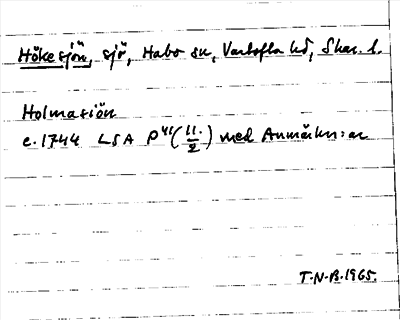 Hökesjön, sjö, Habo sn, Vartofta hd, Skar. l.
Holmasiön
c. 1744 LSA P 41 (11./2) med Anmärkn:ar
T.N.B. 1965.